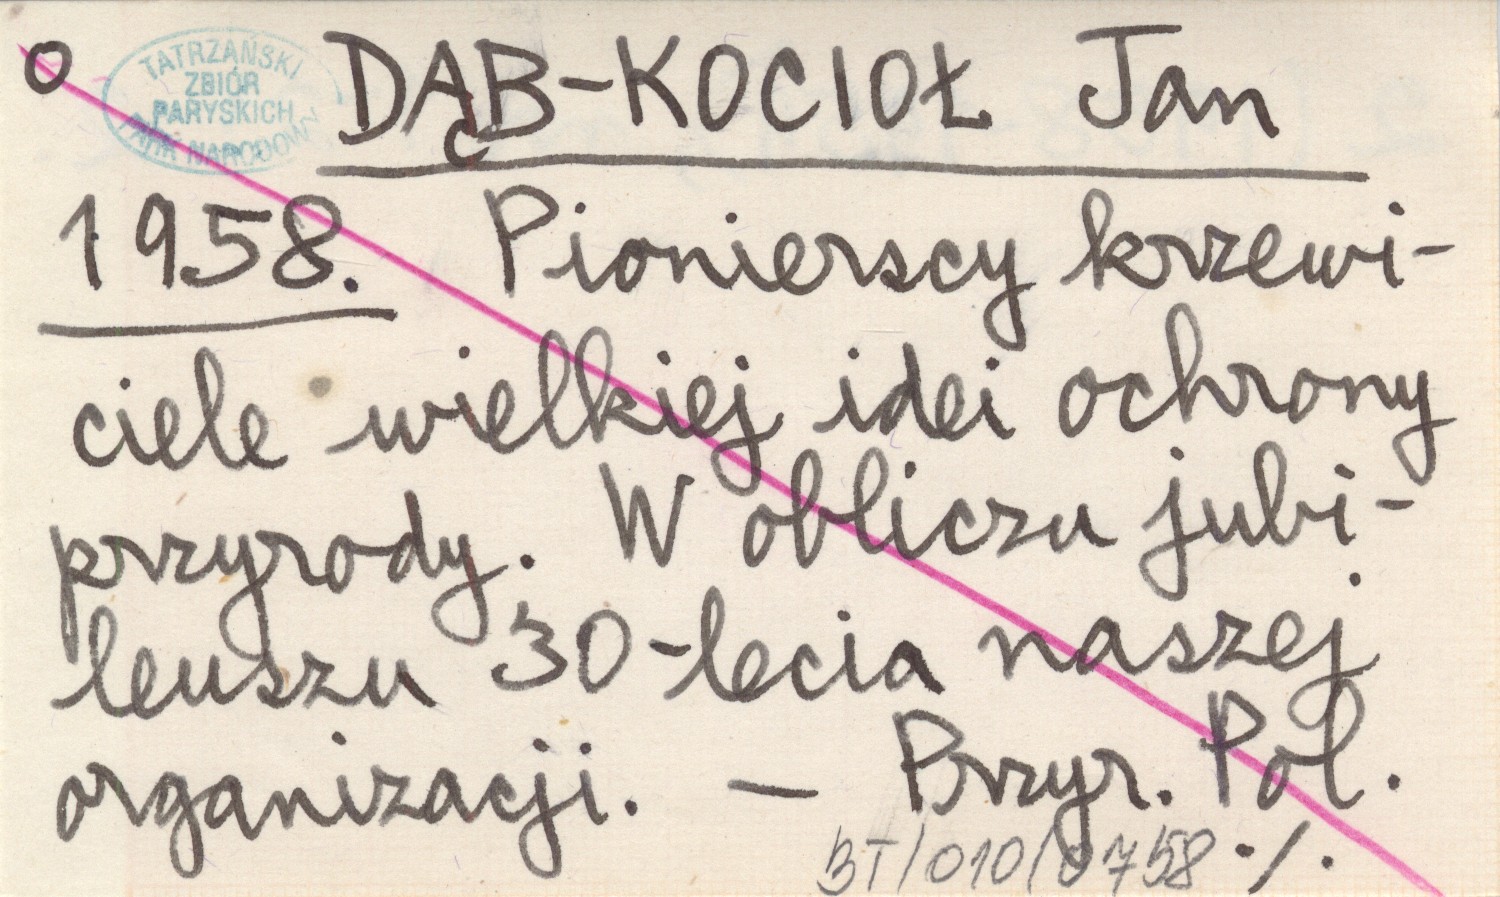 o
TATRZAŃSKI
ZBIÓR
PARYSKICH
PARK NARODOWY
DĄB-KOCIOŁ Jan
1958. Pionierscy krzewi-
ciele wielkiej idei ochrony
przyrody. W obliczu jubi-
leuszu 30-lecia naszej
organizacji. — Przyr. Pol.
BT/010/0758 ./.